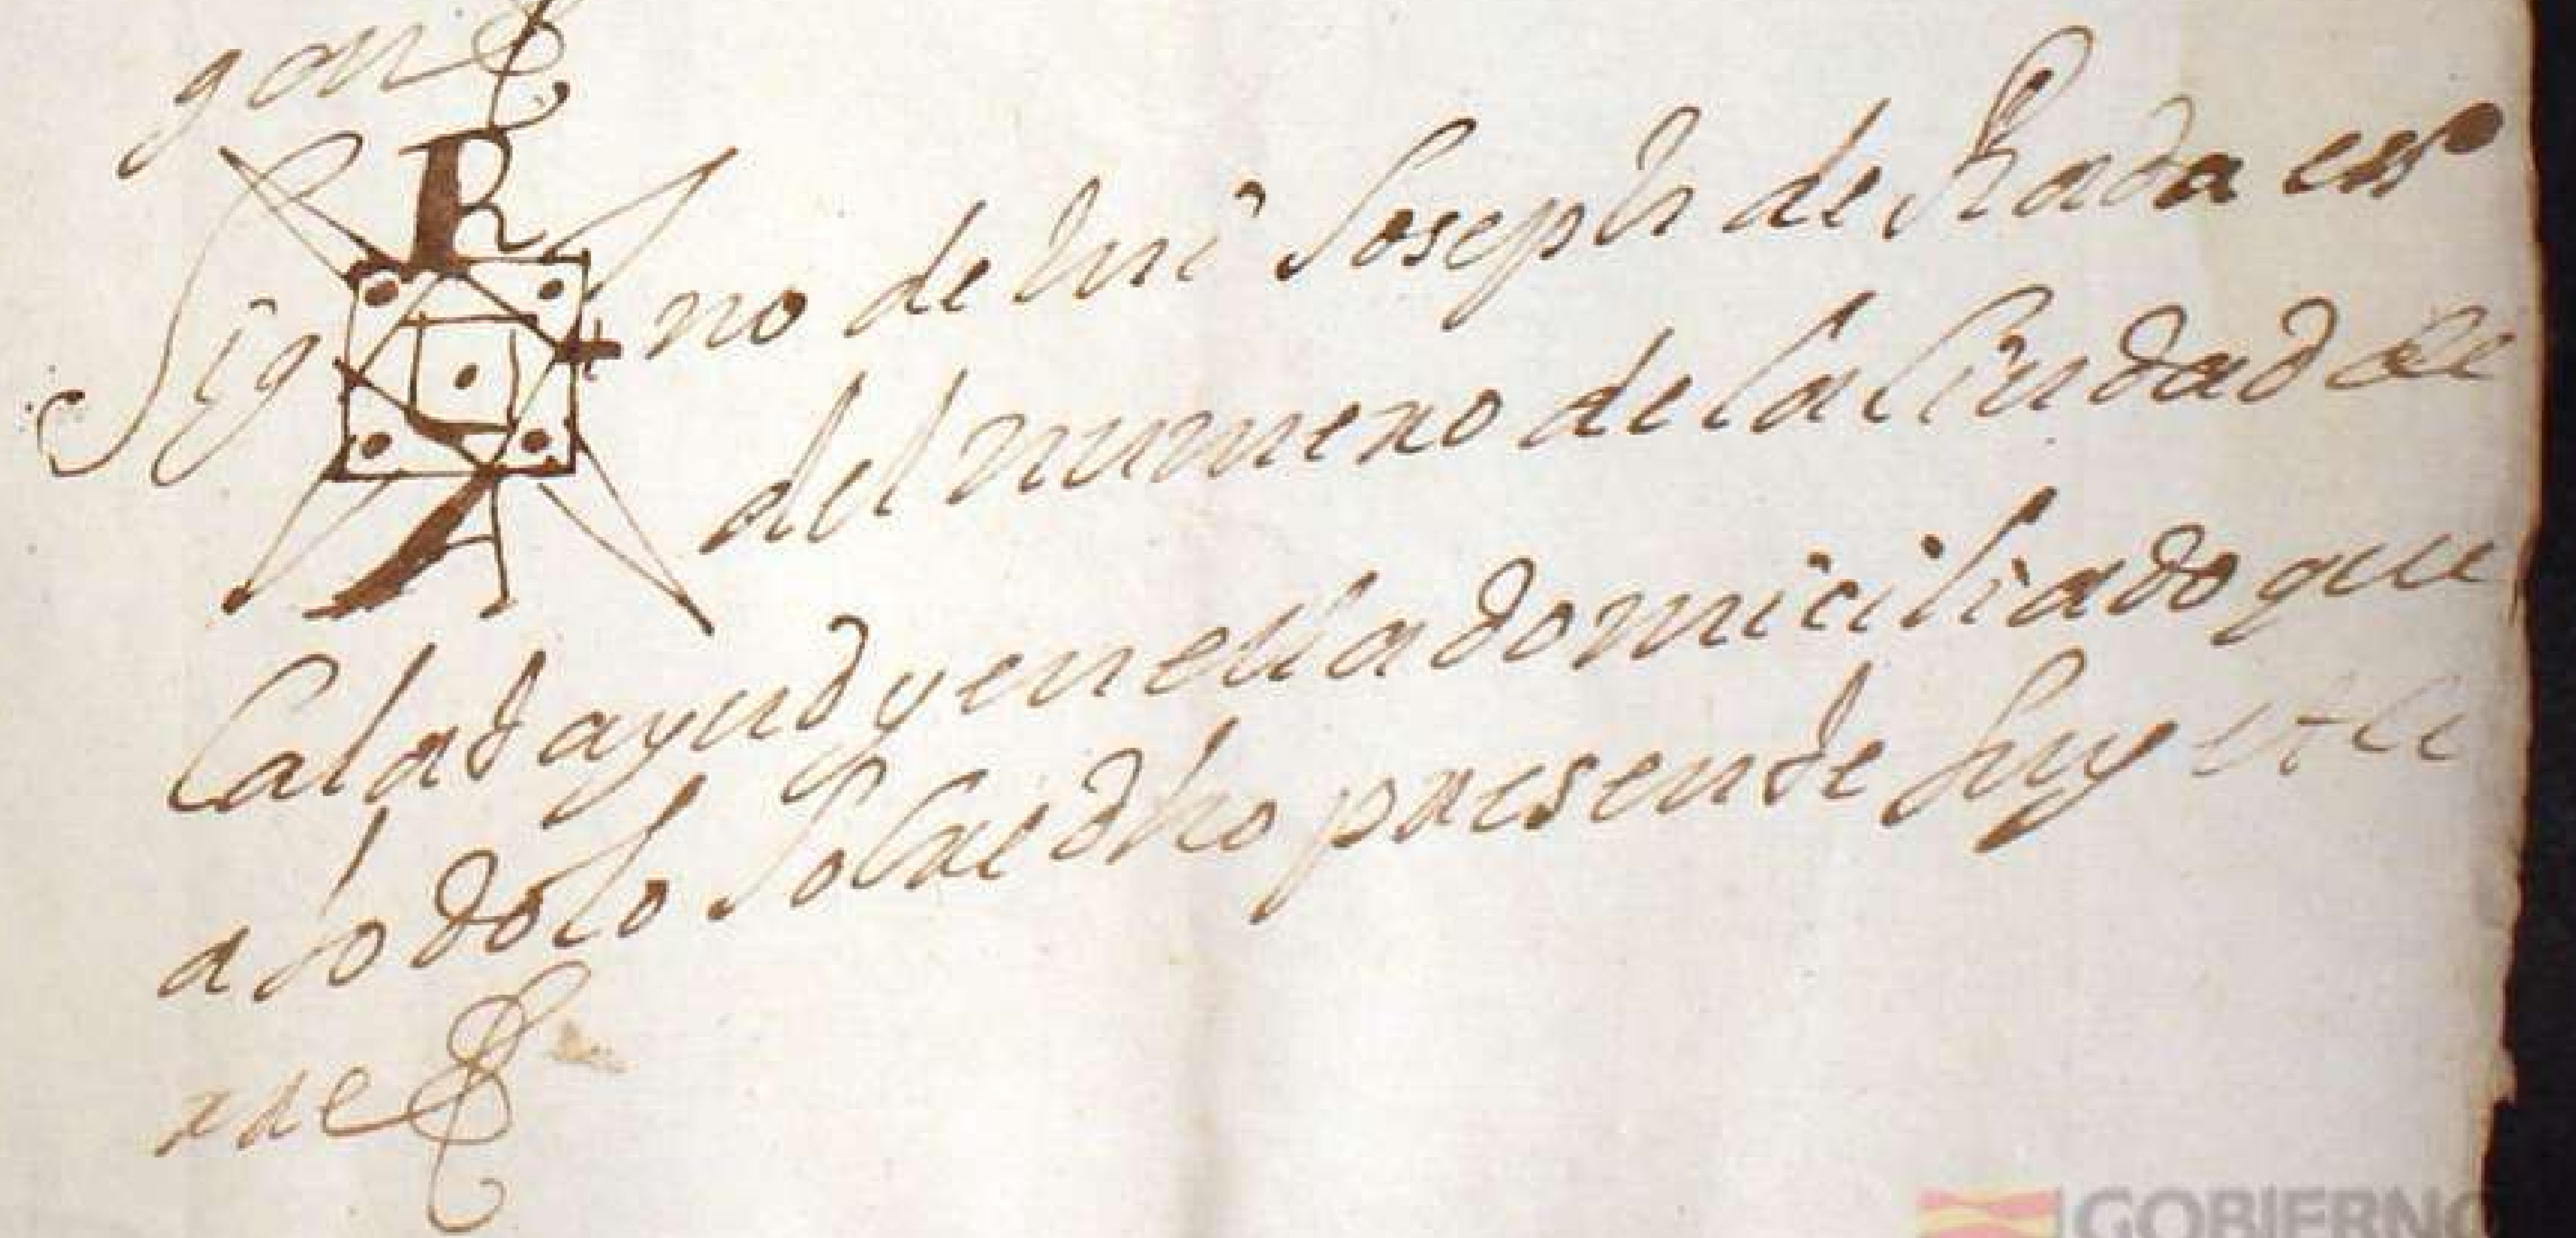 gon &
R
Sig no de mi Joseph de Rada essno
del numero de la Ciudad de
Calatayud y en ella domiciliado que
a todo lo sobre dho presente fuy et ce
rre &
GOBIERNO